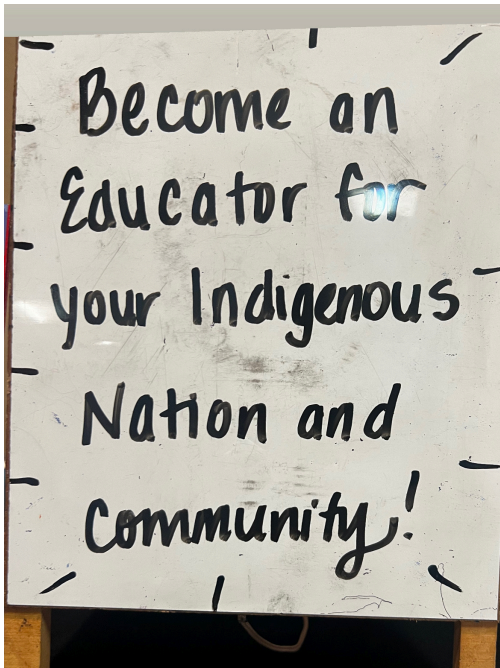 Become an
Educator for
your Indigenous
Nation and
Community!